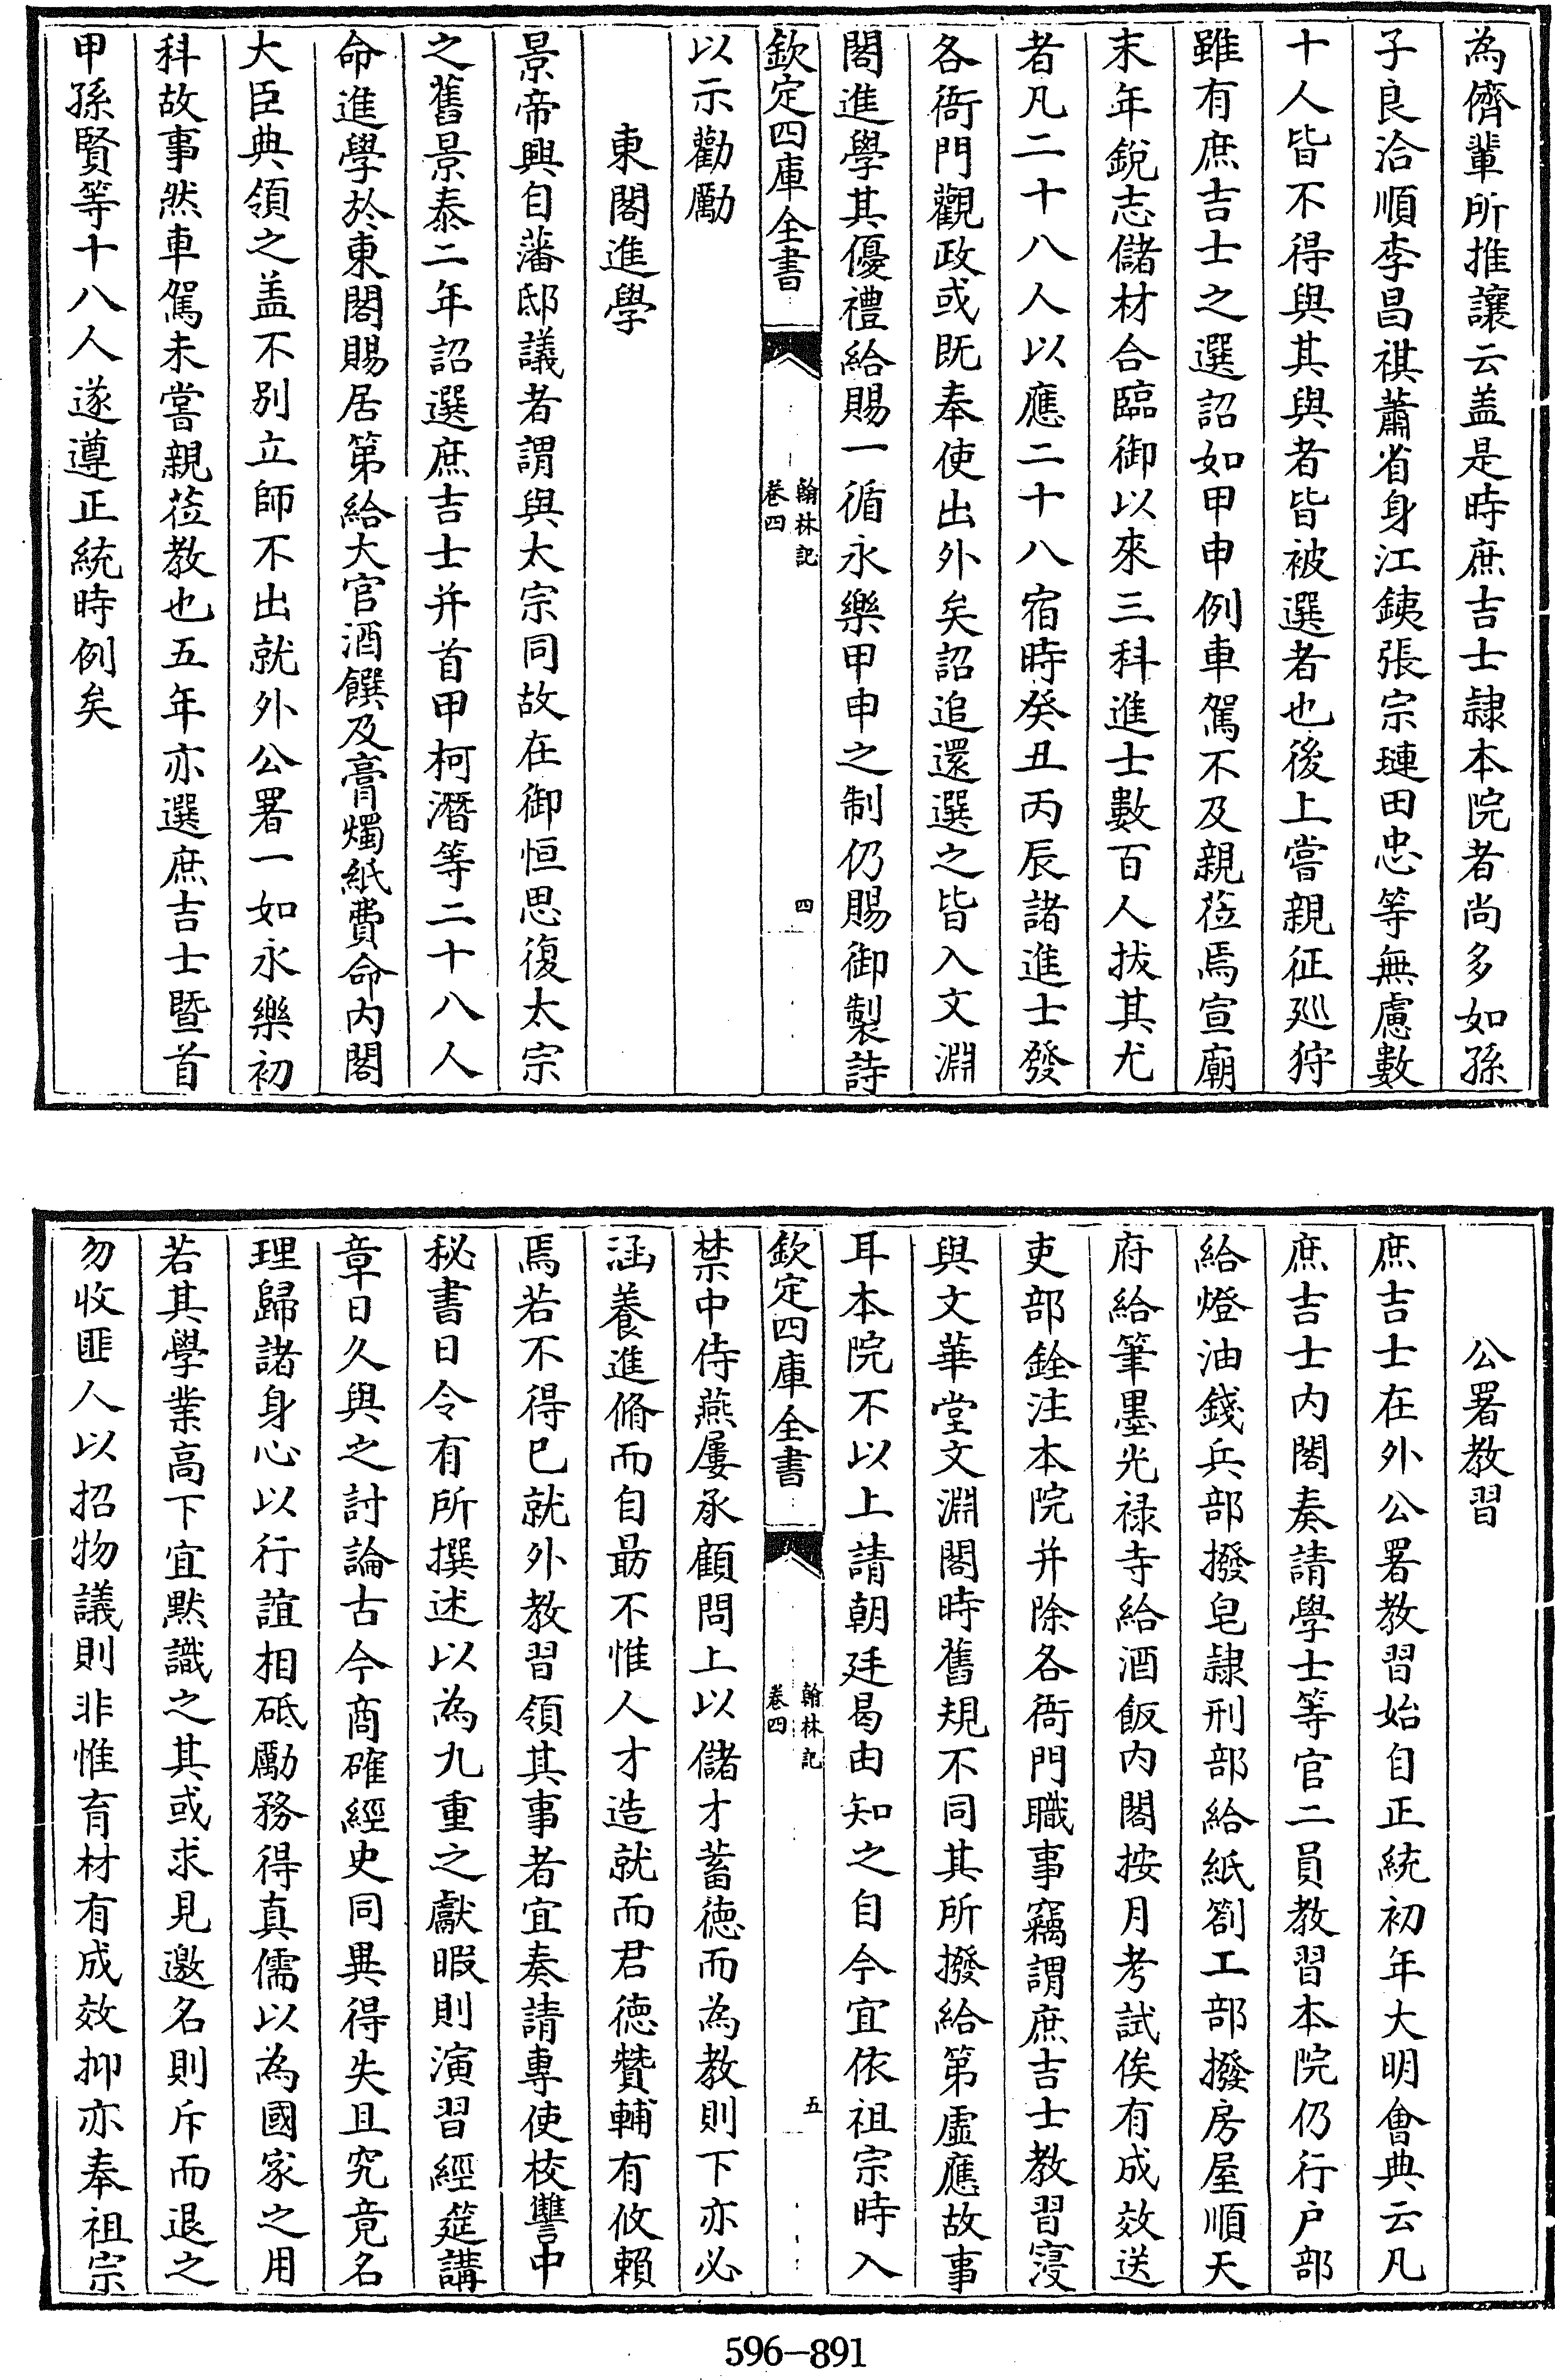 為儕輩所推讓云盖是時庶吉士隷本院者尚多如孫
子良洽順李昌祺蕭省身江銕張宗璉田忠等無慮數
十人皆不得與其與者皆被選者也後上嘗親征廵狩
雖有庶吉士之選詔如甲申例車駕不及親莅焉宣廟
末年銳志儲材合臨御以來三科進士數百人拔其尤
者凡二十八人以應二十八宿時癸丑丙辰諸進士發
各衙門觀政或既奉使出外矣詔追還選之皆入文淵
閣進學其優禮給賜一循永樂甲申之制仍賜御製詩
欽定四庫全書
翰林記
卷四
四
以示勸勵
東閣進學
景帝興自藩邸議者謂與太宗同故在御恒思復太宗
之舊景泰二年詔選庶吉士并首甲柯潛等二十八人
命進學於東閣賜居第給大官酒饌及膏燭紙費命内閣
大臣典領之盖不别立師不出就外公署一如永樂初
科故事然車駕未嘗親莅教也五年亦選庶吉士暨首
甲孫賢等十八人遂遵正統時例矣
公署教習
庶吉士在外公署教習始自正統初年大明會典云凡
庶吉士内閣奏請學士等官二員教習本院仍行户部
給燈油錢兵部撥皂隷刑部給紙劄工部撥房屋順天
府給筆墨光禄寺給酒飯内閣按月考試俟有成效送
吏部銓注本院并除各衙門職事竊謂庶吉士教習寖
與文華堂文淵閣時舊規不同其所撥給第虚應故事
耳本院不以上請朝廷曷由知之自今宜依祖宗時入
欽定四庫全書
翰林記
卷四
五
禁中侍燕屢承顧問上以儲才蓄徳而為教則下亦必
涵養進脩而自勗不惟人才造就而君徳贊輔有攸賴
焉若不得已就外教習領其事者宜奏請專使校讐中
秘書日令有所撰述以為九重之獻暇則演習經筵講
章日久與之討論古今商確經史同異得失且究竟名
理歸諸身心以行誼相砥勵務得真儒以為國家之用
若其學業高下宜默識之其或求見邀名則斥而退之
勿收匪人以招物議則非惟育材有成效抑亦奉祖宗
596-891